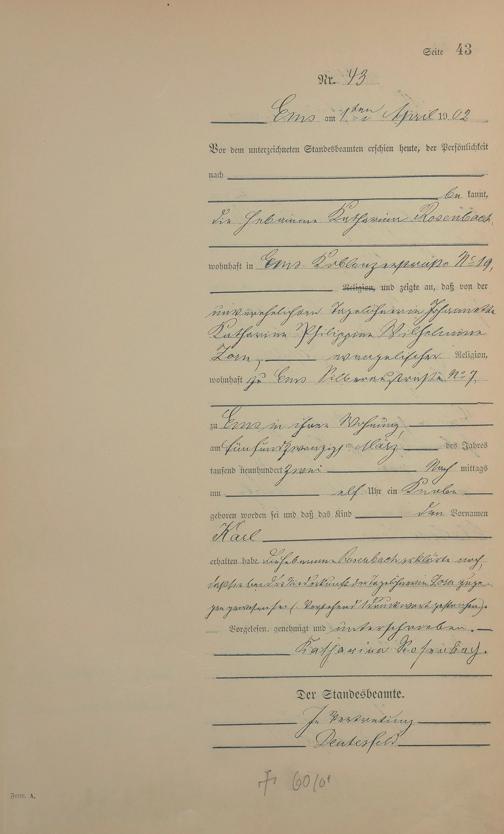 Seite 43
Nr. 43
Ems am 1ten April 1902
Vor dem unterzeichneten Standesbeamten erschien heute, der Persönlichkeit
nach
be kannt,
die Hebamme Katharina Rosenbach
wohnhaft in Ems Koblenzerstraße No 19,
Religion, und zeigte an, daß von der
unverehelichten Tagelöhnerin Johannette
Katharine Philippine Wilhelmine
Zorn, evangelischer Religion,
wohnhaft zu Ems Silberaustraße No 7
zu Ems in ihrer Wohnung,
am fünfundzwanzigsten März des Jahres
tausend neunhundert zwei Nach mittags
um elf Uhr ein Knabe
geboren worden sei und daß das Kind den Vornamen
Karl
erhalten habe. Die Hebamme Rosenbach erklärte noch,
daß sie bei der Niederkunft der Tagelöhnerin Zorn zuge-
gen gewesen sei. (Vorstehend 1 Druckwort gestrichen).
Vorgelesen, genehmigt und unterschrieben.
Katharina Rosenbach.
Der Standesbeamte.
In Vertretung
Form. A.